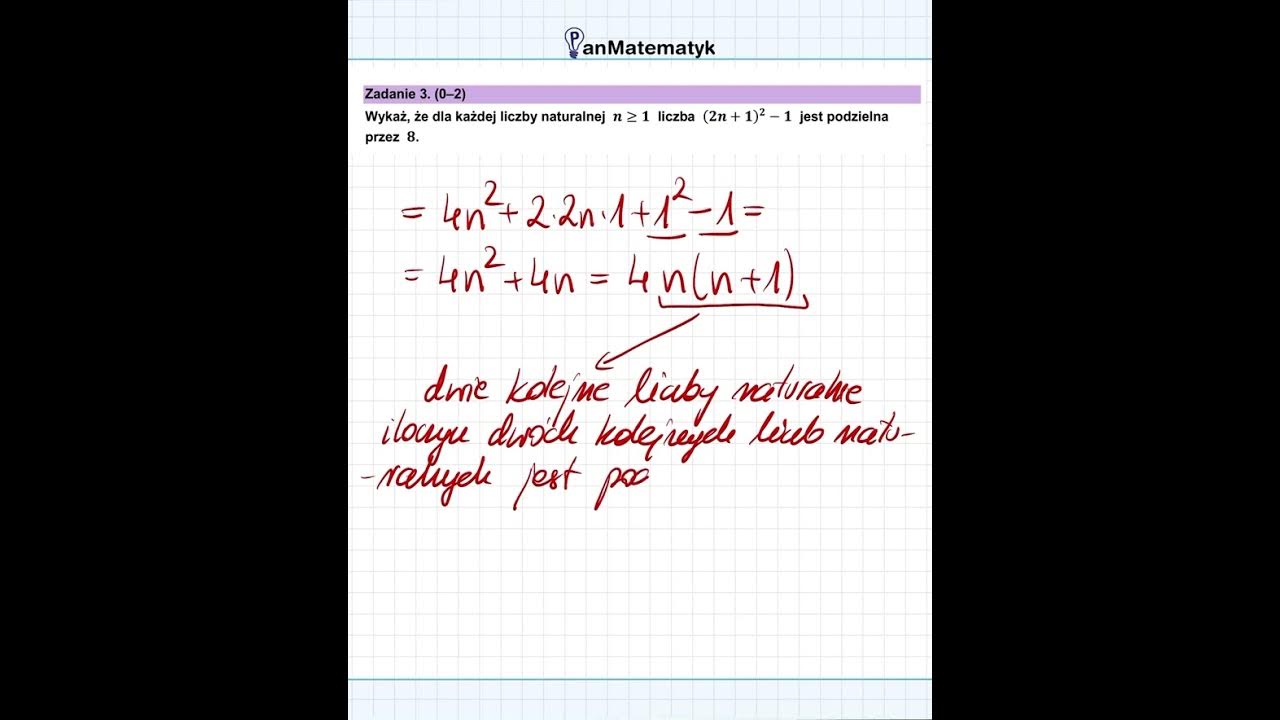 PanMatematyk
Zadanie 3. (0–2)
Wykaż, że dla każdej liczby naturalnej n ≥ 1 liczba (2n + 1)² − 1 jest podzielna
przez 8.
= 4n² + 2·2n·1 + 1² − 1 =
= 4n² + 4n = 4n(n+1)
dwie kolejne liczby naturalne
iloczyn dwóch kolejnych liczb natu-
-ralnych jest pod